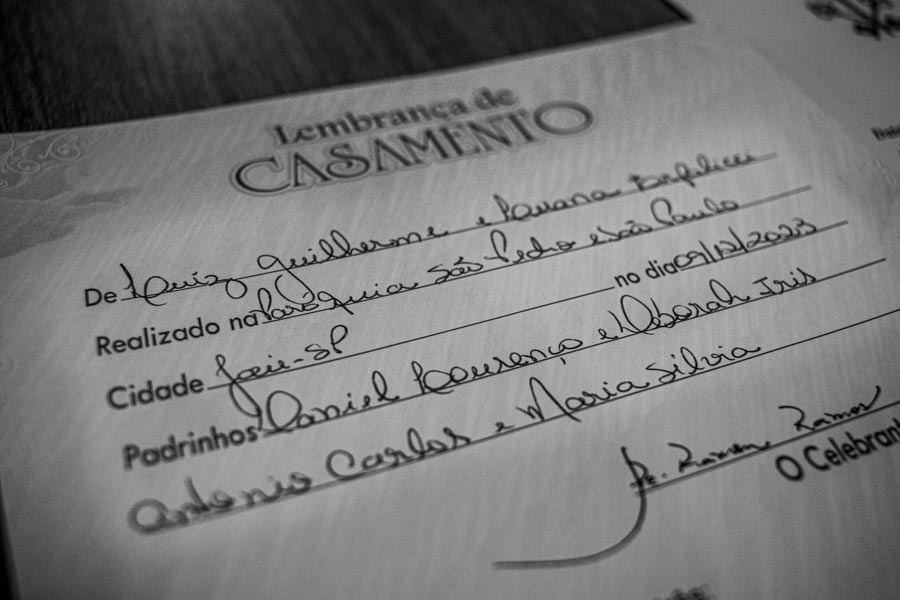 Lembrança de
CASAMENTO
De Luiz Guilherme e Luana
Realizado na Paróquia São Pedro e São Paulo
Cidade Jaú-SP no dia 09/12/2023
Padrinhos Daniel Lourenço e Déborah Iris
Antonio Carlos e Maria Silvia
Pe. Ramon Ramos
O Celebrant